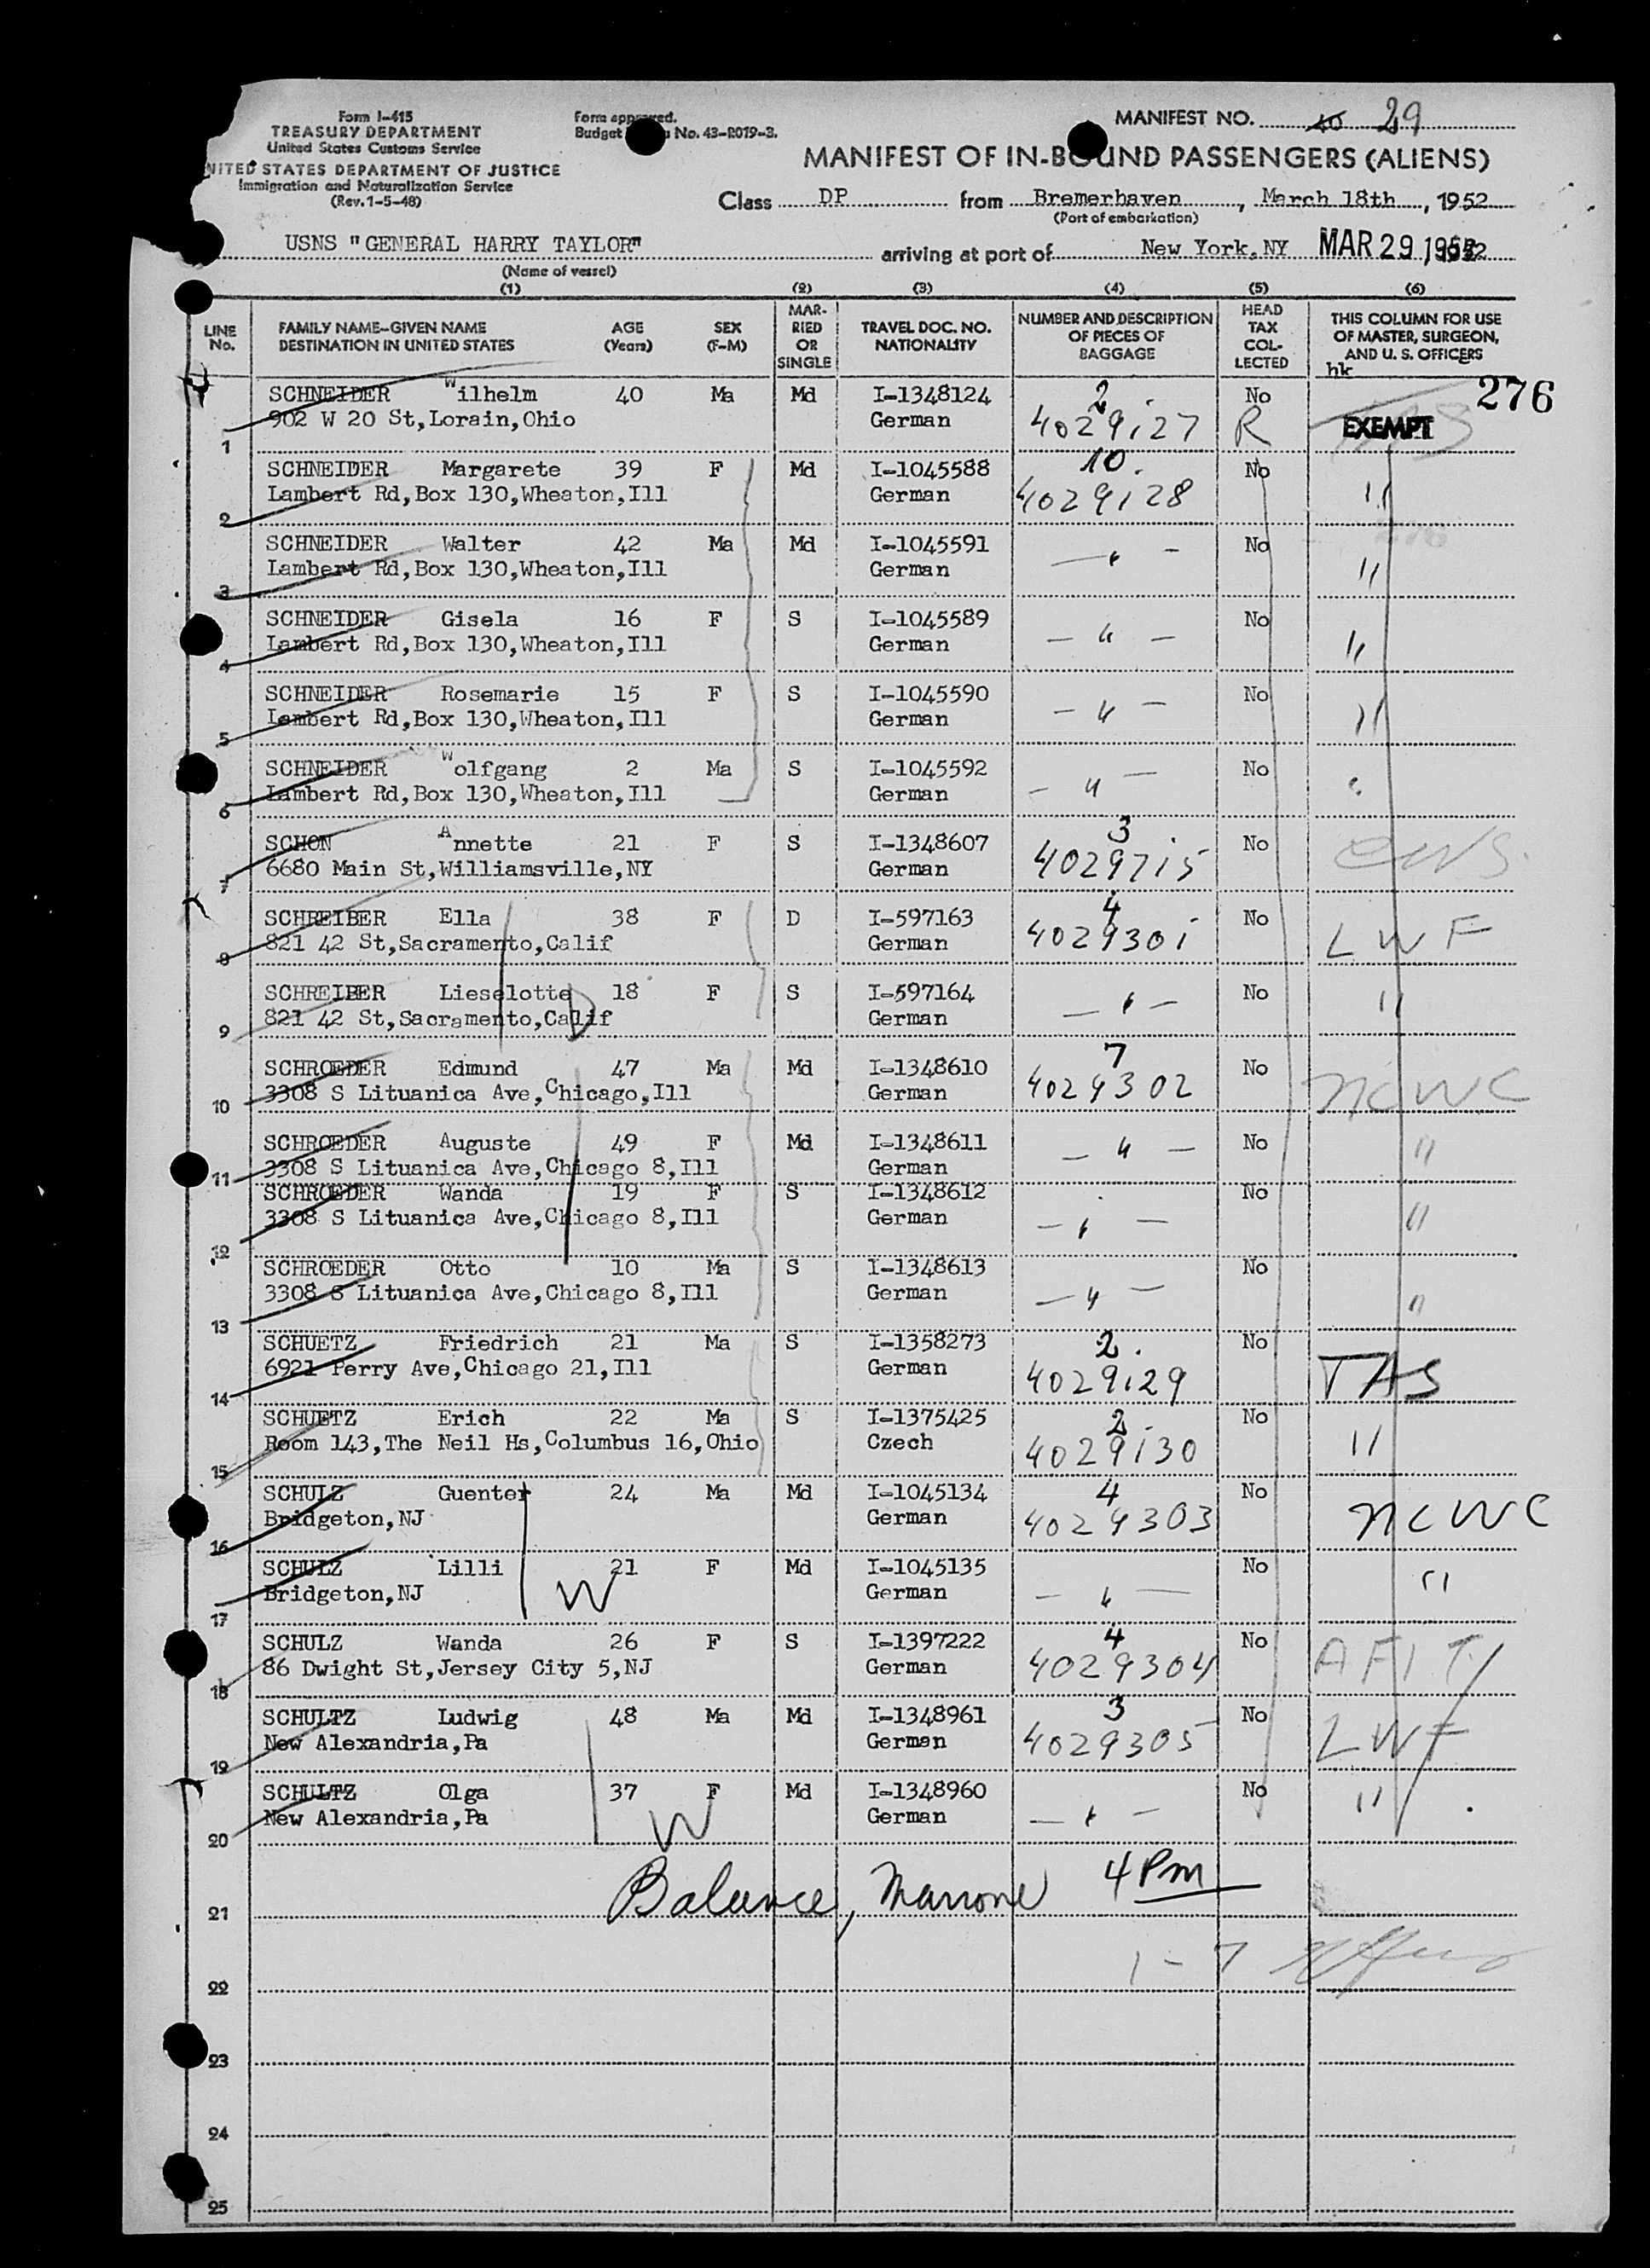 Form I-415
TREASURY DEPARTMENT
United States Customs Service
NITED STATES DEPARTMENT OF JUSTICE
Immigration and Naturalization Service
(Rev. 1-5-48)
Form approved.
Budget No. 43-R019-3.
MANIFEST NO. 40 29
MANIFEST OF IN-BOUND PASSENGERS (ALIENS)
Class DP from Bremerhaven, March 18th, 1952
(Port of embarkation)
USNS "GENERAL HARRY TAYLOR" arriving at port of New York, NY MAR 29 1952
(Name of vessel)
(1) (2) (3) (4) (5) (6)
LINE No. FAMILY NAME–GIVEN NAME DESTINATION IN UNITED STATES AGE (Years) SEX (F–M) MARRIED OR SINGLE TRAVEL DOC. NO. NATIONALITY NUMBER AND DESCRIPTION OF PIECES OF BAGGAGE HEAD TAX COLLECTED THIS COLUMN FOR USE OF MASTER, SURGEON, AND U. S. OFFICERS
hk
276
SCHNEIDER Wilhelm 40 Ma Md I-1348124 2 No
1 902 W 20 St,Lorain,Ohio German 4029127 R EXEMPT
SCHNEIDER Margarete 39 F Md I-1045588 10. No
2 Lambert Rd,Box 130,Wheaton,Ill German 4029128 "
SCHNEIDER Walter 42 Ma Md I-1045591 — " — No
3 Lambert Rd,Box 130,Wheaton,Ill German "
SCHNEIDER Gisela 16 F S I-1045589 — " — No
4 Lambert Rd,Box 130,Wheaton,Ill German "
SCHNEIDER Rosemarie 15 F S I-1045590 — " — No
5 Lambert Rd,Box 130,Wheaton,Ill German "
SCHNEIDER Wolfgang 2 Ma S I-1045592 — " — No
6 Lambert Rd,Box 130,Wheaton,Ill German "
SCHON Annette 21 F S I-1348607 3 No
7 6680 Main St,Williamsville,NY German 4029715 CWS.
SCHREIBER Ella 38 F D I-597163 4 No
8 821 42 St,Sacramento,Calif German 4029301 LWF
SCHREIBER Lieselotte 18 F S I-597164 — " — No "
9 821 42 St,Sacramento,Calif German
SCHROEDER Edmund 47 Ma Md I-1348610 7 No
10 3308 S Lituanica Ave,Chicago,Ill German 4029302 NCWC
SCHROEDER Auguste 49 F Md I-1348611 — " — No "
11 3308 S Lituanica Ave,Chicago 8,Ill German
SCHROEDER Wanda 19 F S I-1348612 No
12 3308 S Lituanica Ave,Chicago 8,Ill German — " — "
SCHROEDER Otto 10 Ma S I-1348613 No
13 3308 S Lituanica Ave,Chicago 8,Ill German — " — "
SCHUETZ Friedrich 21 Ma S I-1358273 2. No
14 6921 Perry Ave,Chicago 21,Ill German 4029129 TAS
SCHUETZ Erich 22 Ma S I-1375425 2. No
15 Room 143,The Neil Hs,Columbus 16,Ohio Czech 4029130 "
SCHULZ Guenter 24 Ma Md I-1045134 4 No
16 Bridgeton,NJ German 4029303 NCWC
SCHULZ Lilli 21 F Md I-1045135 No "
17 Bridgeton,NJ W German — " —
SCHULZ Wanda 26 F S I-1397222 4 No
18 86 Dwight St,Jersey City 5,NJ German 4029304 AFIT
SCHULTZ Ludwig 48 Ma Md I-1348961 3 No
19 New Alexandria,Pa German 4029305 LWF
SCHULTZ Olga 37 F Md I-1348960 No "
20 New Alexandria,Pa W German — " —
21 Balance, Marrone 4 Pm
22 1 - 7
23
24
25